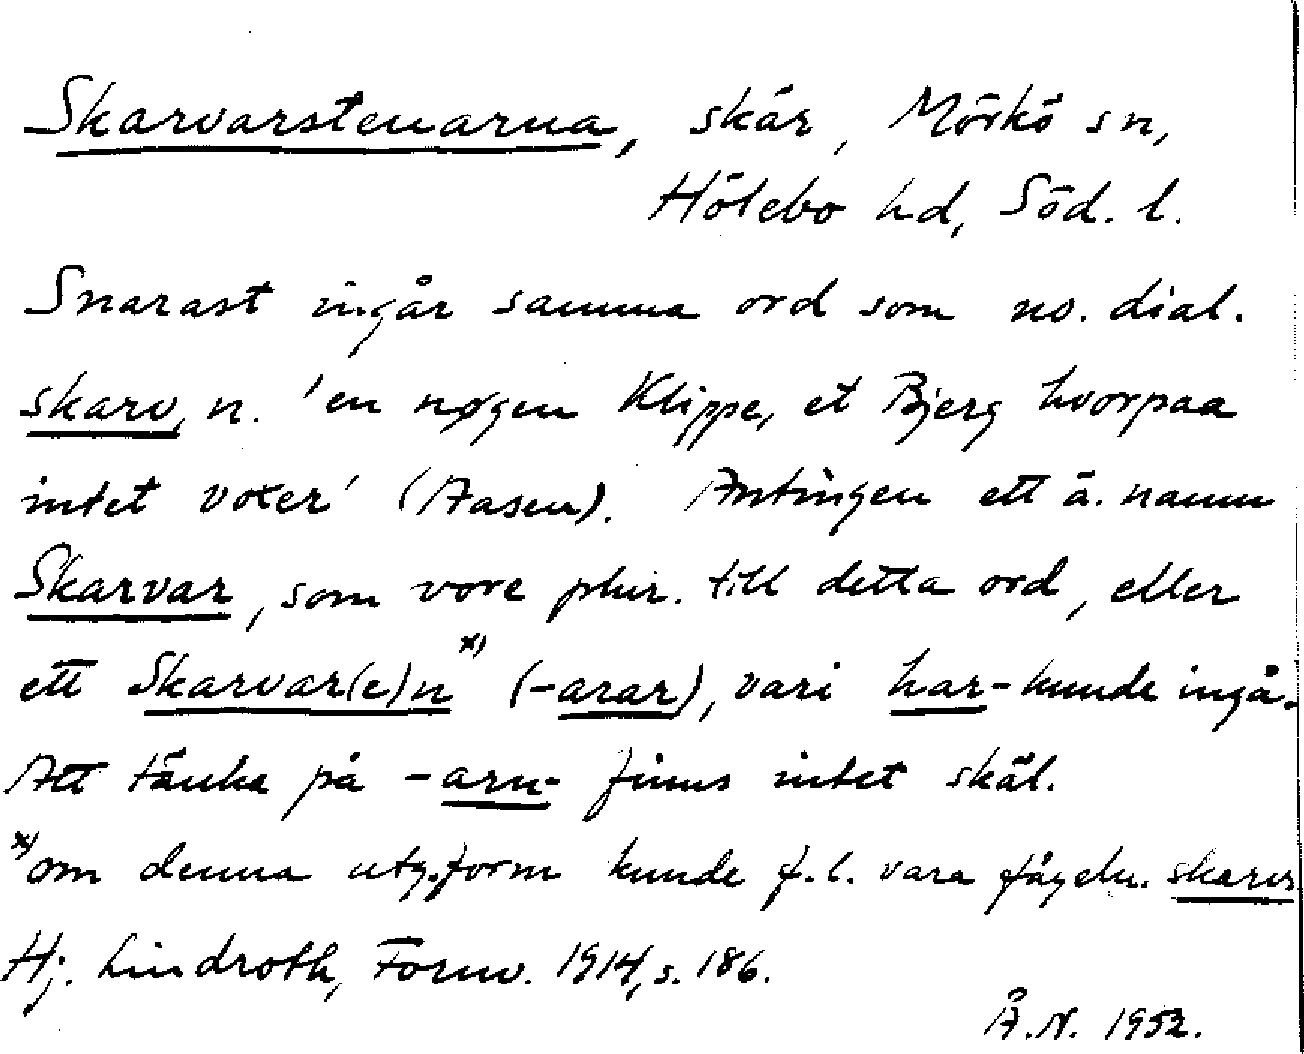 Skarvarstenarna, skär, Mörkö sn,
Hölebo hd, Söd. l.
Snarast ingår samma ord som no. dial.
skarv, n. 'en nøgen Klippe, et Bjerg hvorpaa
intet voxer' (Aasen). Antingen ett ä. namn
Skarvar, som vore plur. till detta ord, eller
ett Skarvar(e)n x) (-arar), vari har- kunde ingå.
Att tänka på -arn- finns intet skäl.
x) om denna utg.form kunde f.l. vara fågeln. skarv
Hj. Lindroth, Fornv. 1914, s. 186.
Å.N. 1952.